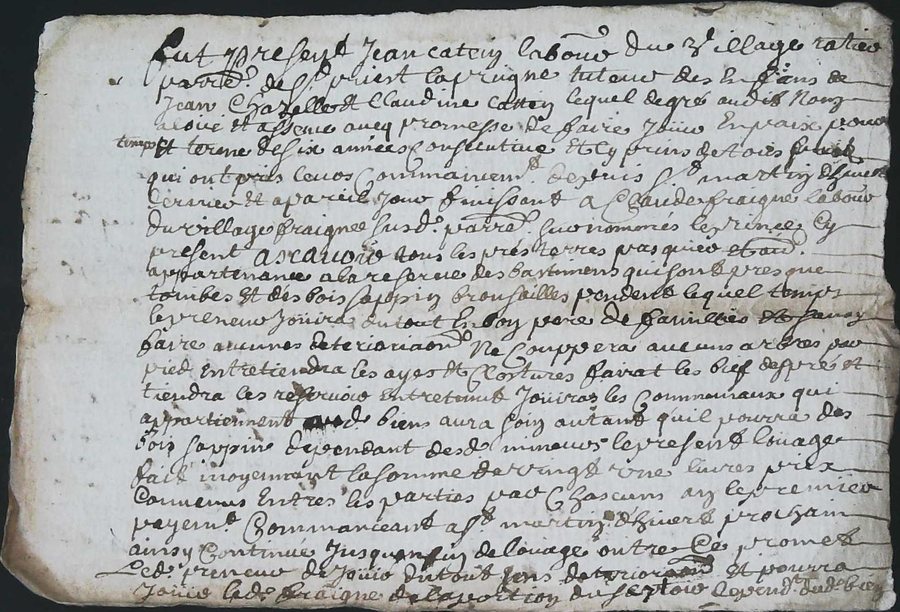 fut present Jean catein labour du village
parre. de St. priest laprugne tuteur des Enfans de
Jean Chazelle et Claudine Cattin lequel de gré audit Nom
a loüé et assencé avecq promesse de faire Jouir En paix pour
temps et terme de six années consecutive Et
qui ont pris leurs Commancemt. depuis St. martin d'hivert
dernier et a pareil Jour finissant a Claude fraigne labour
du village fraigne susd. parre. Cy
present ascavoir tous les prés terres pasquier
appartenance a la reserve des bastimens qui sont presque
tombés Et des bois sappin brousailles pendent lequel temps
le preneur Jouira du tout En bon pere de famillies
faire aucunes deterioraon. Ne Couppera aucuns arbres par
pied Entretiendra les ayes et Clostures farat les bief des pré et
tiendra les Entretenus Jouiras les Communaux qui
appartiennent biens aura soin autant quil pourra des
bois sappin dependant desd. mineurs le present louage
fait moyennant la somme de vingt une livres prix
Convenus Entres les parties par Chascuns an le premier
payemt. Commanceant a St. martin d'hivert prochain
ainsy Continué Jusqu'en fin de louage outre Ce promet
Led. preneur de Jouir du tout sans deterioraon Et pourra
Jouir led. fraigne de la portion du